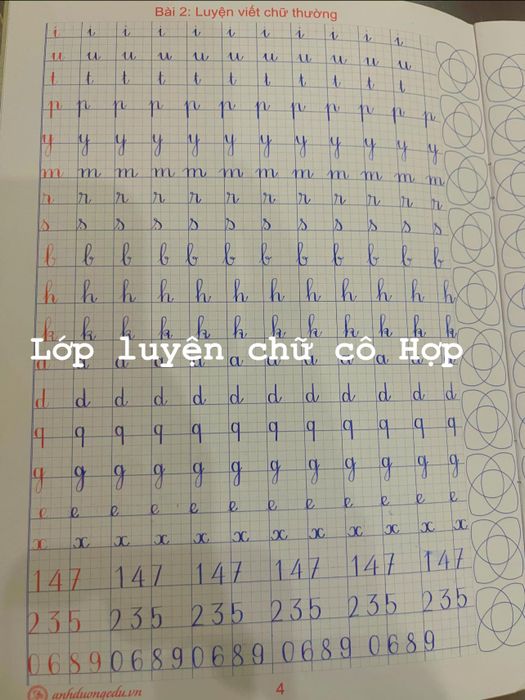 Bài 2: Luyện viết chữ thường
i i i i i i i i i i i
u u u u u u u u u u u
t t t t t t t t t t t
p p p p p p p p p p p p
y y y y y y y y y y y y
m m m m m m m m m m m m
r r r r r r r r r r r r
s s s s s s s s s s s s
b b b b b b b b b b b b
h h h h h h h h h h h h
k k k k k k k k k k k k
Lớp luyện chữ cô Hợp
a a a a a a a a a a a a
d d d d d d d d d d d d
q q q q q q q q q q q q
g g g g g g g g g g g g
e e e e e e e e e e e e
x x x x x x x x x x x x
147 147 147 147 147 147
235 235 235 235 235 235
0689 0689 0689 0689 0689
anhduongedu.vn 4